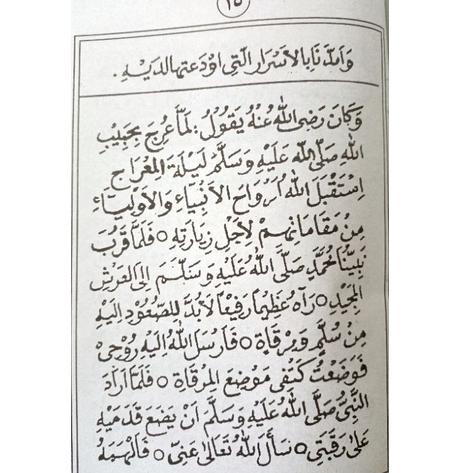 ١٥
وَاَمِدَّنَا بِالْاَسْرَارِ الَّتِى اَوْدَعْتَهَا لَدَيْهِ.
وَكَانَ رَضِىَ اللهُ عَنْهُ يَقُوْلُ: لَمَّا عُرِجَ بِحَبِيْبِ
اللهِ صَلَّى اللهُ عَلَيْهِ وَسَلَّمَ لَيْلَةَ الْمِعْرَاجِ
اِسْتَقْبَلَ اللهُ اَرْوَاحَ الْاَنْبِيَاءِ وَالْاَوْلِيَاءِ
مِنْ مَقَامَاتِهِمْ لِاَجْلِ زِيَارَتِهِ ○ فَلَمَّا قَرُبَ
نَبِيُّنَا مُحَمَّدٌ صَلَّى اللهُ عَلَيْهِ وَسَلَّمَ اِلَى الْعَرْشِ
الْمَجِيْدِ ○ رَآهُ عَظِيْمًا رَفِيْعًا لَابُدَّ لِلصُّعُوْدِ اِلَيْهِ
مِنْ سُلَّمٍ وَمِرْقَاةٍ ○ فَاَرْسَلَ اللهُ اِلَيْهِ رُوْحِىْ
فَوَضَعْتُ كَتِفِى مَوْضِعَ الْمِرْقَاةِ ○ فَلَمَّا اَرَادَ
النَّبِىُّ صَلَّى اللهُ عَلَيْهِ وَسَلَّمَ اَنْ يَضَعَ قَدَمَيْهِ
عَلَى رَقَبَتِى ○ سَأَلَ اللهَ تَعَالَى عَنِّى ○ فَاَلْهَمَهُ